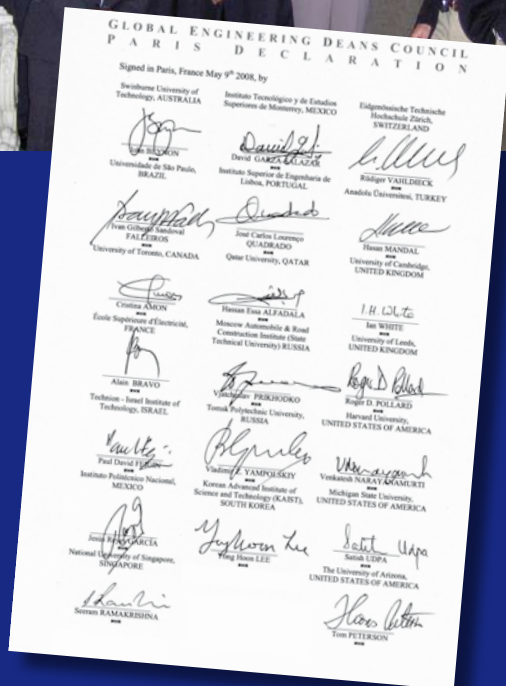 GLOBAL ENGINEERING DEANS COUNCIL
PARIS DECLARATION
Signed in Paris, France May 9th 2008, by
Swinburne University of
Technology, AUSTRALIA
John BEYNON
Universidade de São Paulo,
BRAZIL
Ivan Gilberto Sandoval
FALLEIROS
University of Toronto, CANADA
Cristina AMON
École Supérieure d'Électricité,
FRANCE
Alain BRAVO
Technion - Israel Institute of
Technology, ISRAEL
Paul David
Instituto Politécnico Nacional,
MEXICO
Jesús GARCÍA
National University of Singapore,
SINGAPORE
Seeram RAMAKRISHNA
Instituto Tecnológico y de Estudios
Superiores de Monterrey, MEXICO
David GARZA SALAZAR
Instituto Superior de Engenharia de
Lisboa, PORTUGAL
José Carlos Lourenço
QUADRADO
Qatar University, QATAR
Hassan Essa ALFADALA
Moscow Automobile & Road
Construction Institute (State
Technical University) RUSSIA
Vyacheslav PRIKHODKO
Tomsk Polytechnic University,
RUSSIA
Vladimir YAMPOLSKIY
Korean Advanced Institute of
Science and Technology (KAIST),
SOUTH KOREA
Yong Hoon Lee
Yong Hoon LEE
Eidgenössische Technische
Hochschule Zürich,
SWITZERLAND
Rüdiger VAHLDIECK
Anadolu Üniversitesi, TURKEY
Hasan MANDAL
University of Cambridge,
UNITED KINGDOM
I.H. White
Ian WHITE
University of Leeds,
UNITED KINGDOM
Roger D Pollard
Roger D. POLLARD
Harvard University,
UNITED STATES OF AMERICA
Venkatesh NARAYANAMURTI
Michigan State University,
UNITED STATES OF AMERICA
Satish Udpa
Satish UDPA
The University of Arizona,
UNITED STATES OF AMERICA
Tom PETERSON